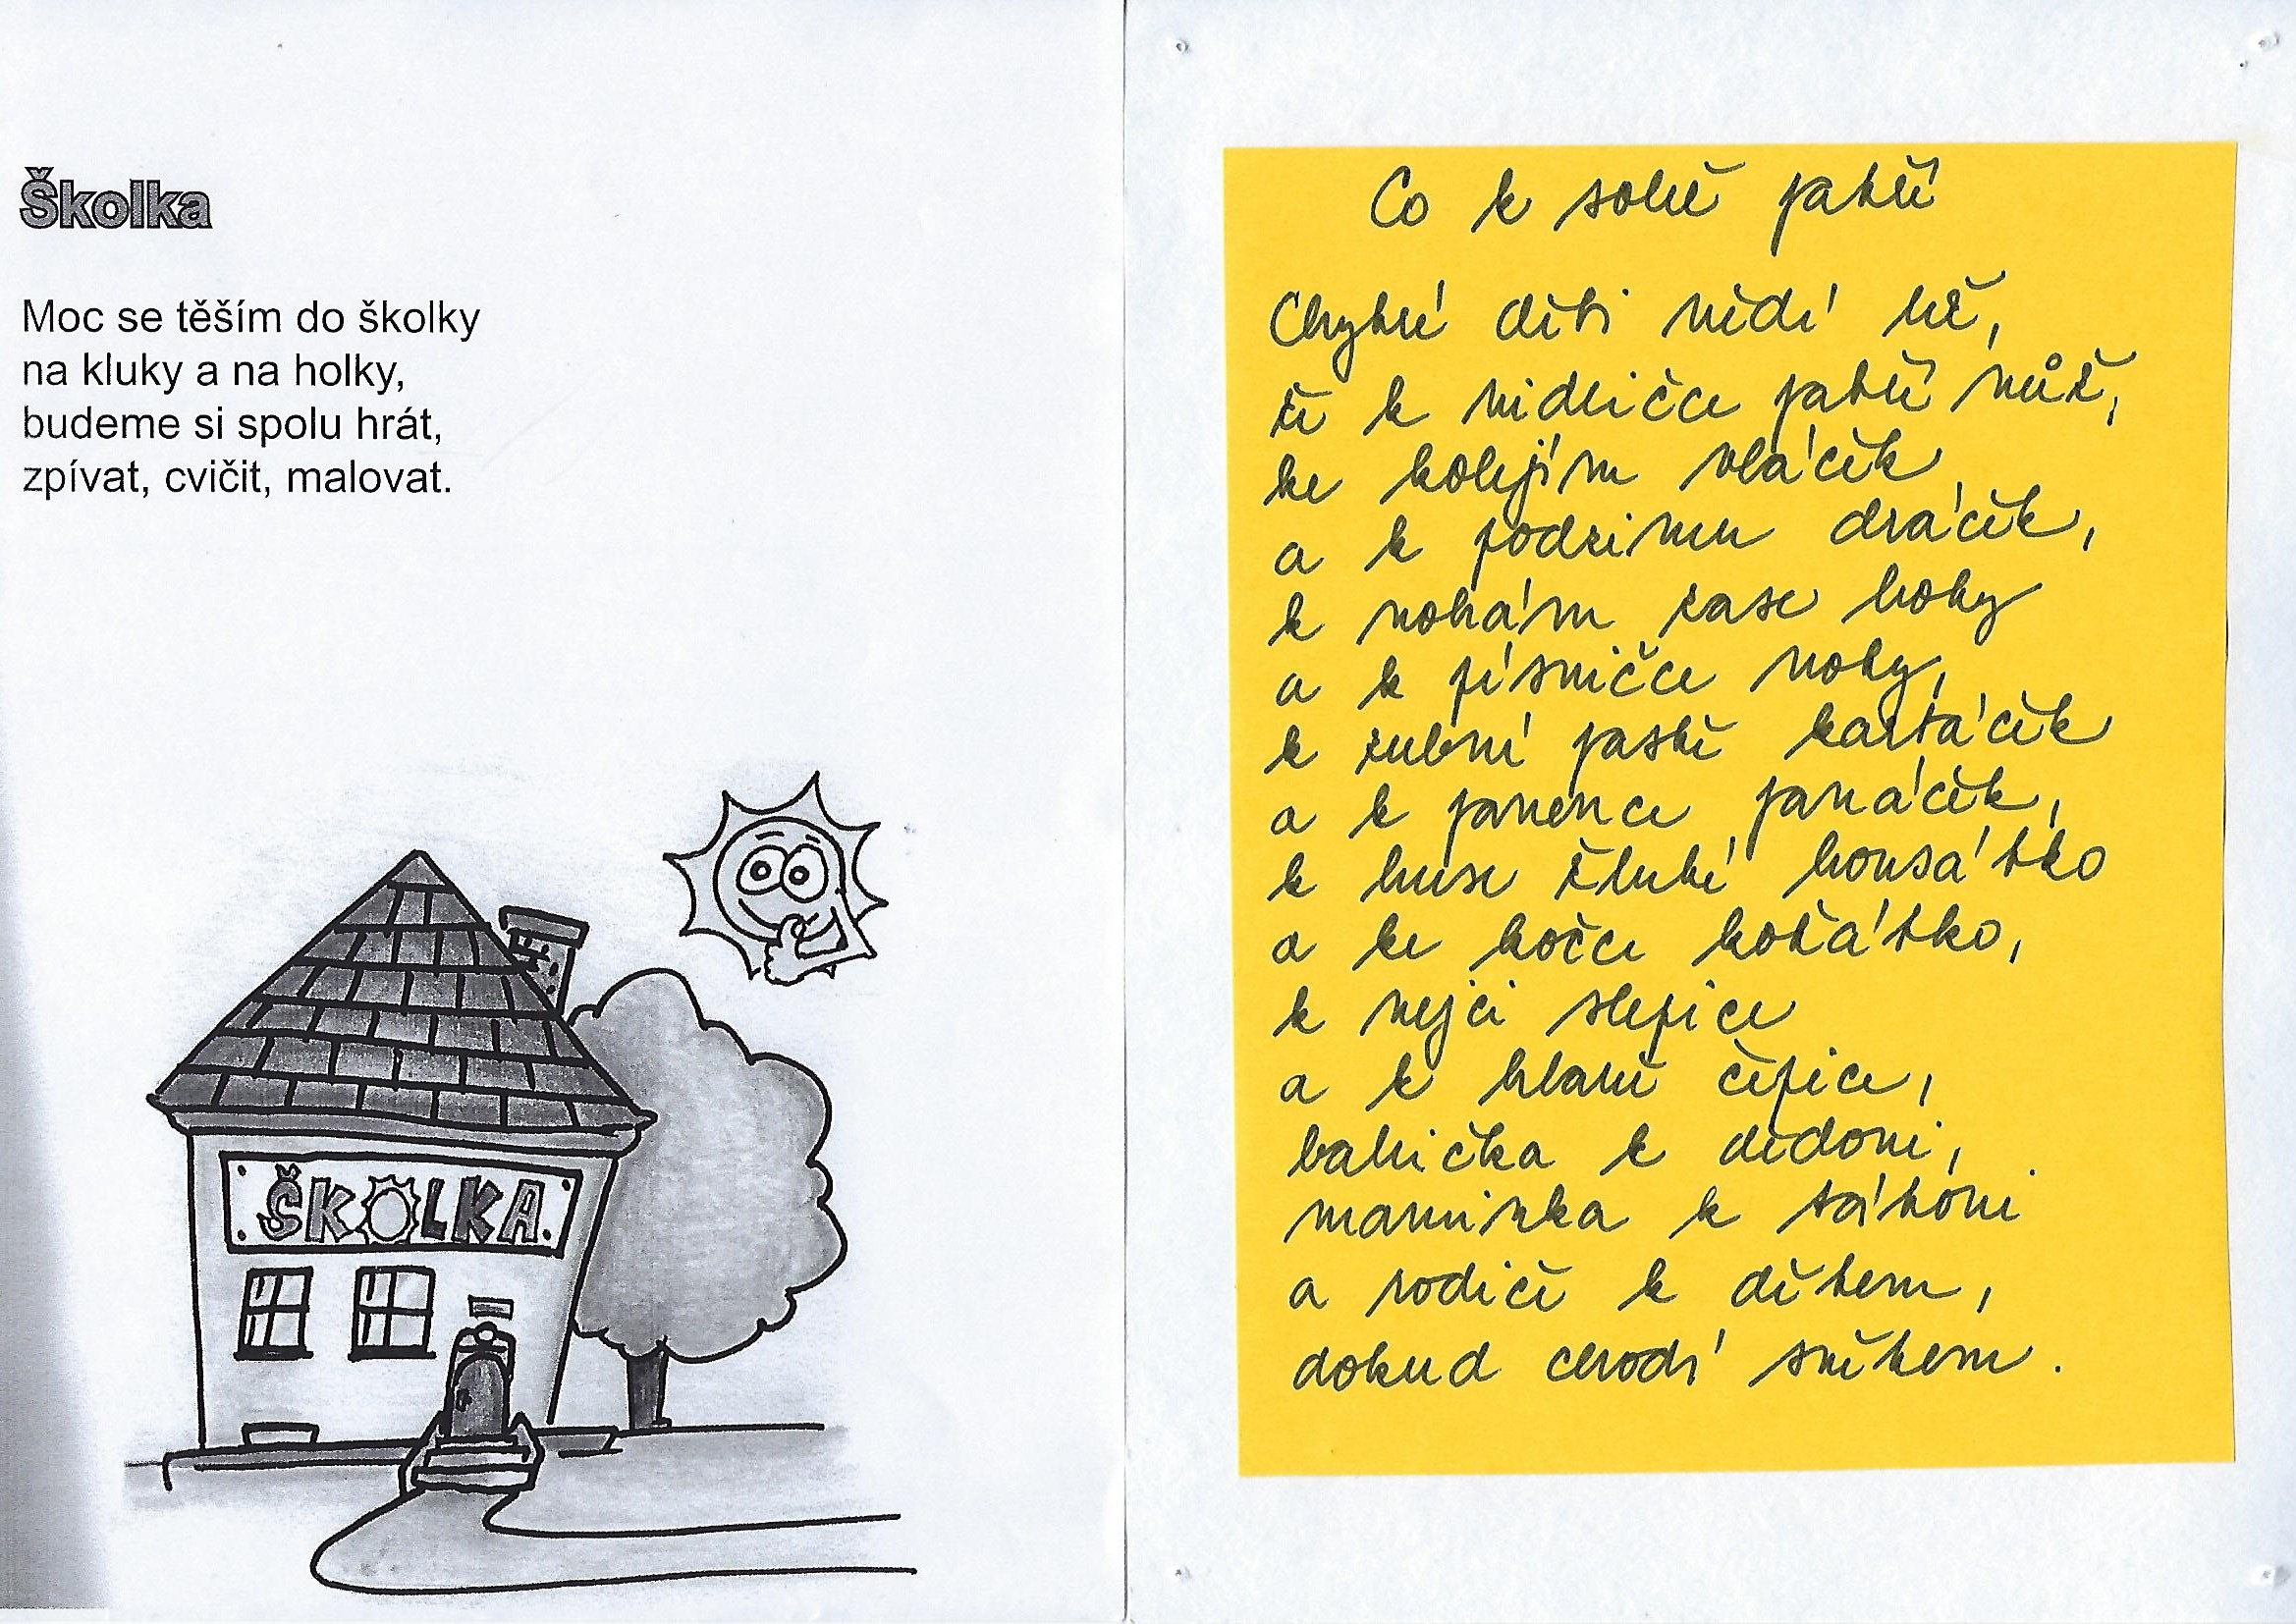 Školka
Moc se těším do školky
na kluky a na holky,
budeme si spolu hrát,
zpívat, cvičit, malovat.
ŠKOLKA
Co k sobě patří
Chytré děti vědí už,
že k vidličce patří nůž,
ke kolejím vláček
a k podzimu dráček,
k nohám zase boty
a k písničce noty,
k zubní pastě kartáček
a k panence panáček,
k huse žluté housátko
a ke kočce koťátko,
k vejci slepice
a k hlavě čepice,
babička k dědovi,
maminka k tátovi
a rodiče k dětem,
dokud chodí světem.